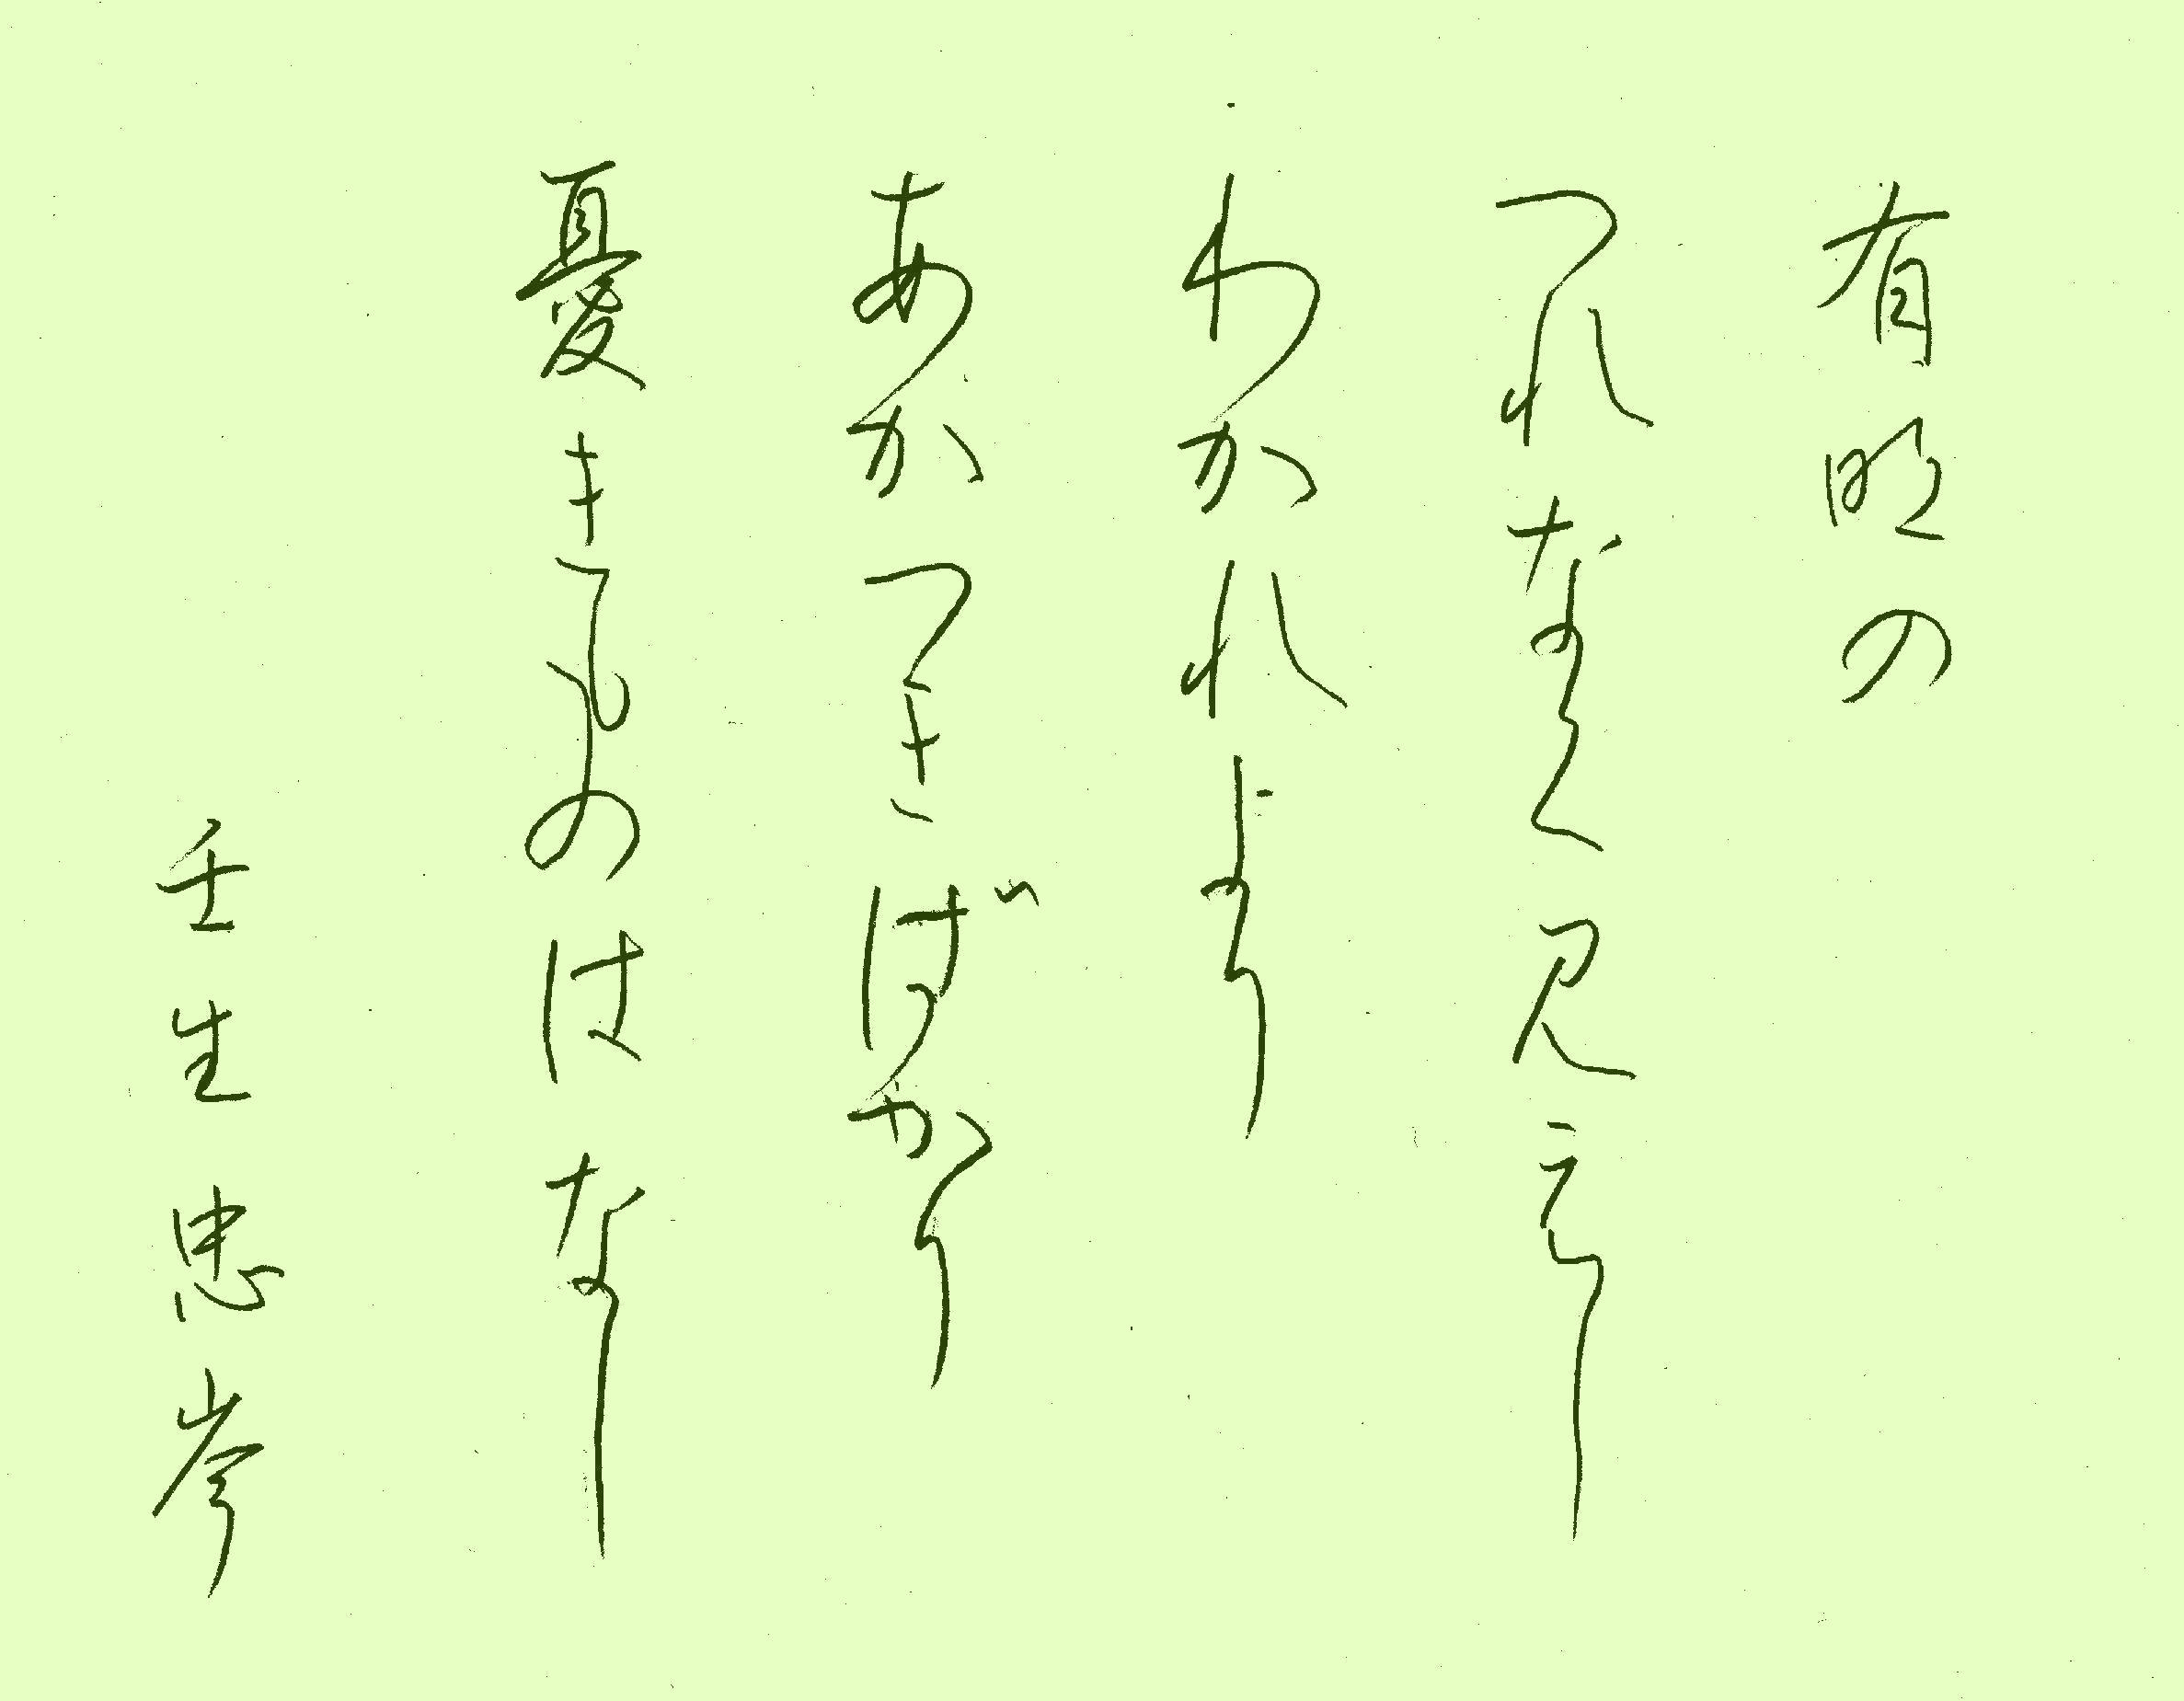 有明の
つれなく見えし
わかれより
あかつきばかり
憂きものはなし
壬生忠岑